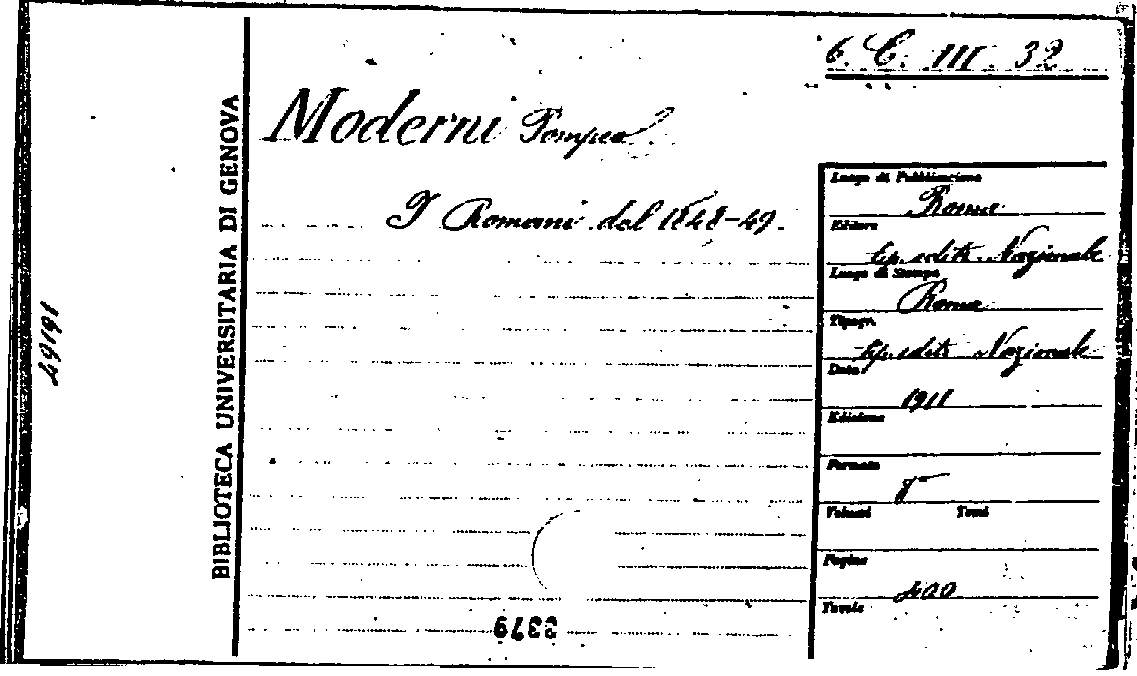 6. C. III. 32
Moderni Pompeo
I Romani del 1848-49.
BIBLIOTECA UNIVERSITARIA DI GENOVA
Luogo di Pubblicazione
Roma
Editore
tip. edit. Nazionale
Luogo di Stampa
Roma
Tipogr.
tip. edit. Nazionale
Data
1911
Edizione
Formato
8°
Volumi Tomi
Pagine
400
Tavole
3379